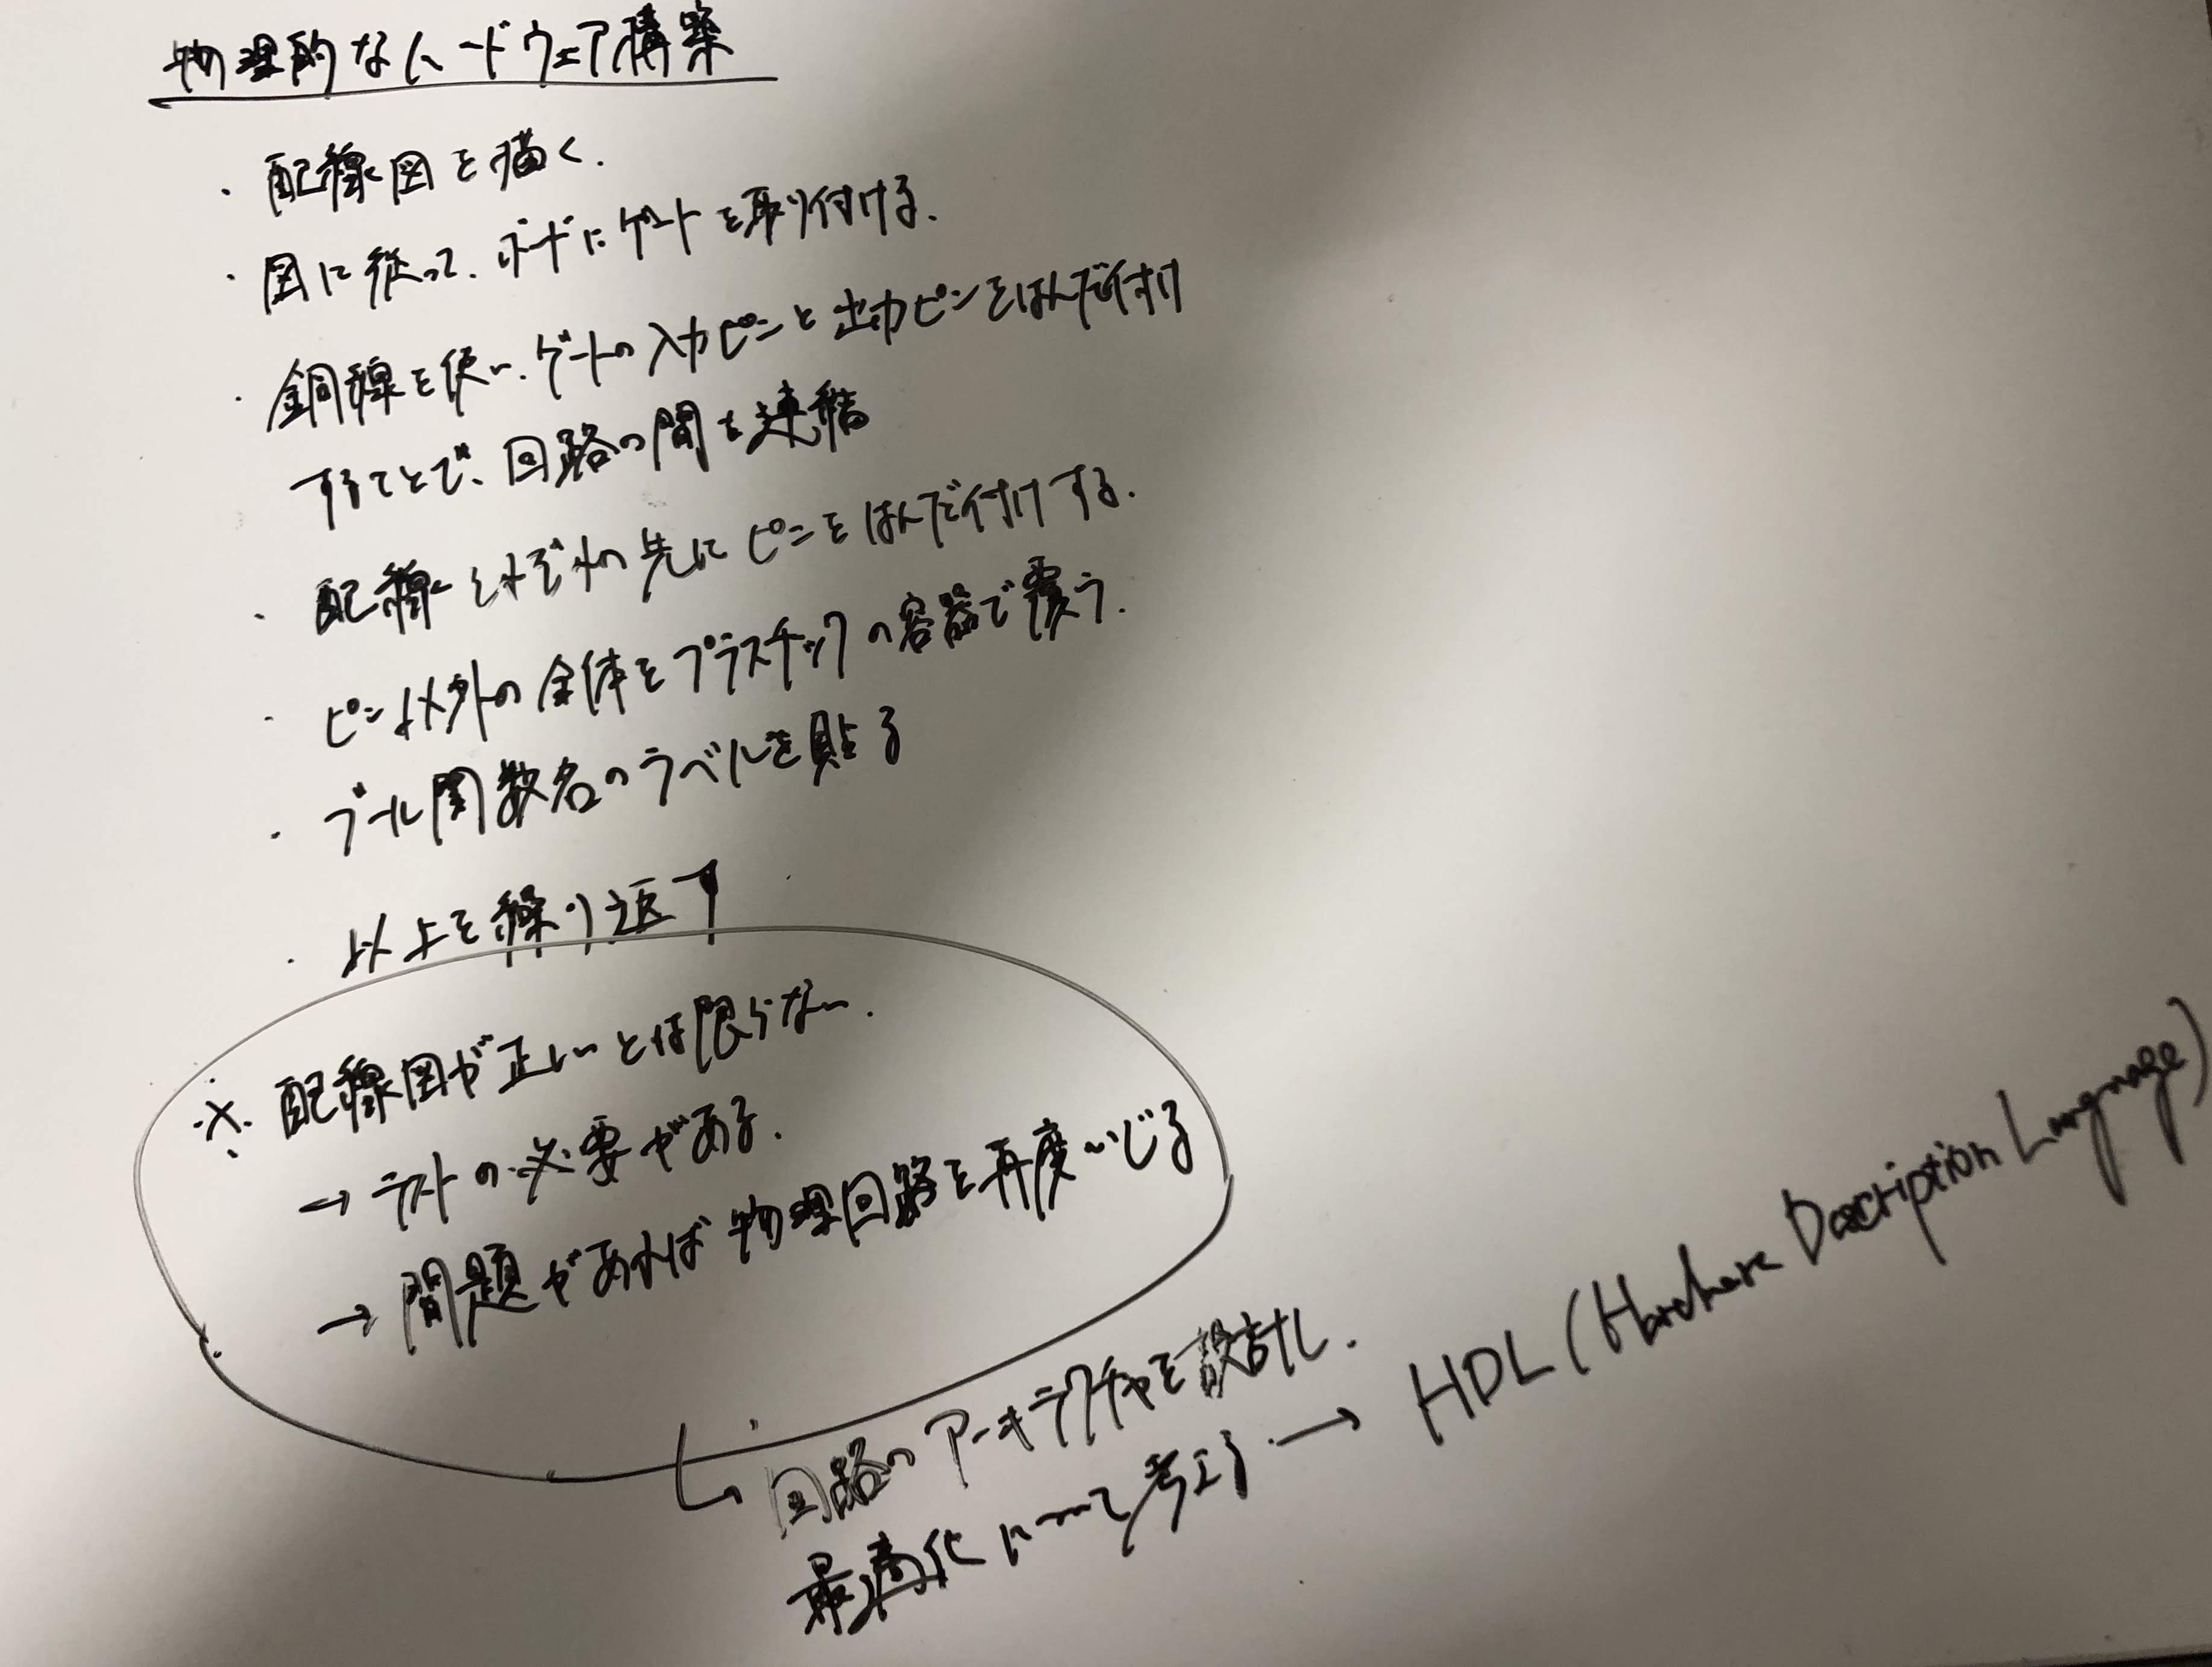 物理的なハードウェア構築
・配線図を描く.
・図に従って、ボードにゲートを取り付ける.
・銅線を使い、ゲートの入力ピンと出力ピンをはんだ付け
することで、回路の間を連結
・配線それぞれの先にピンをはんだ付けする.
・ピン以外の全体をプラスチックの容器で覆う.
・ブール関数名のラベルを貼る
・以上を繰り返す
※配線図が正しいとは限らない.
→テストの必要がある.
→問題があれば物理回路を再度いじる
回路のアーキテクチャを設計し.
最適化について考える → HDL (Hardware Description Language)